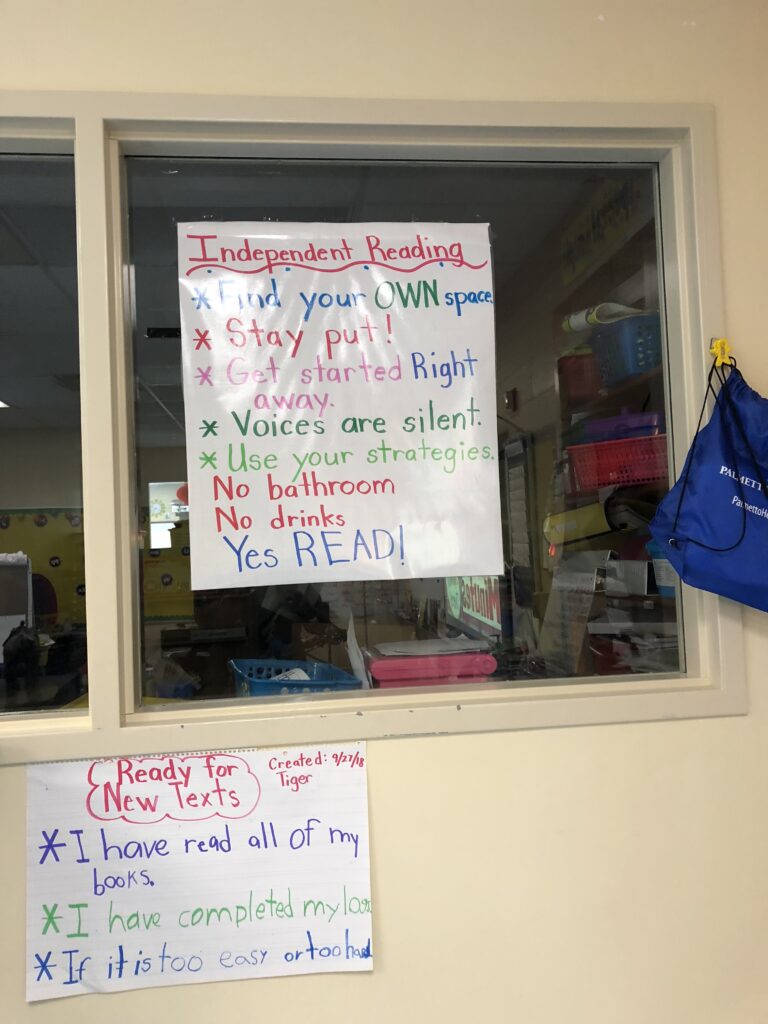 Independent Reading
* Find your OWN space.
* Stay put!
* Get started Right
away.
* Voices are silent.
* Use your strategies.
No bathroom
No drinks
Yes READ!
Minutes
Ready for
New Texts
Created: 9/27/18
Tiger
* I have read all of my
books.
* I have completed my log
* If it is too easy or too hard